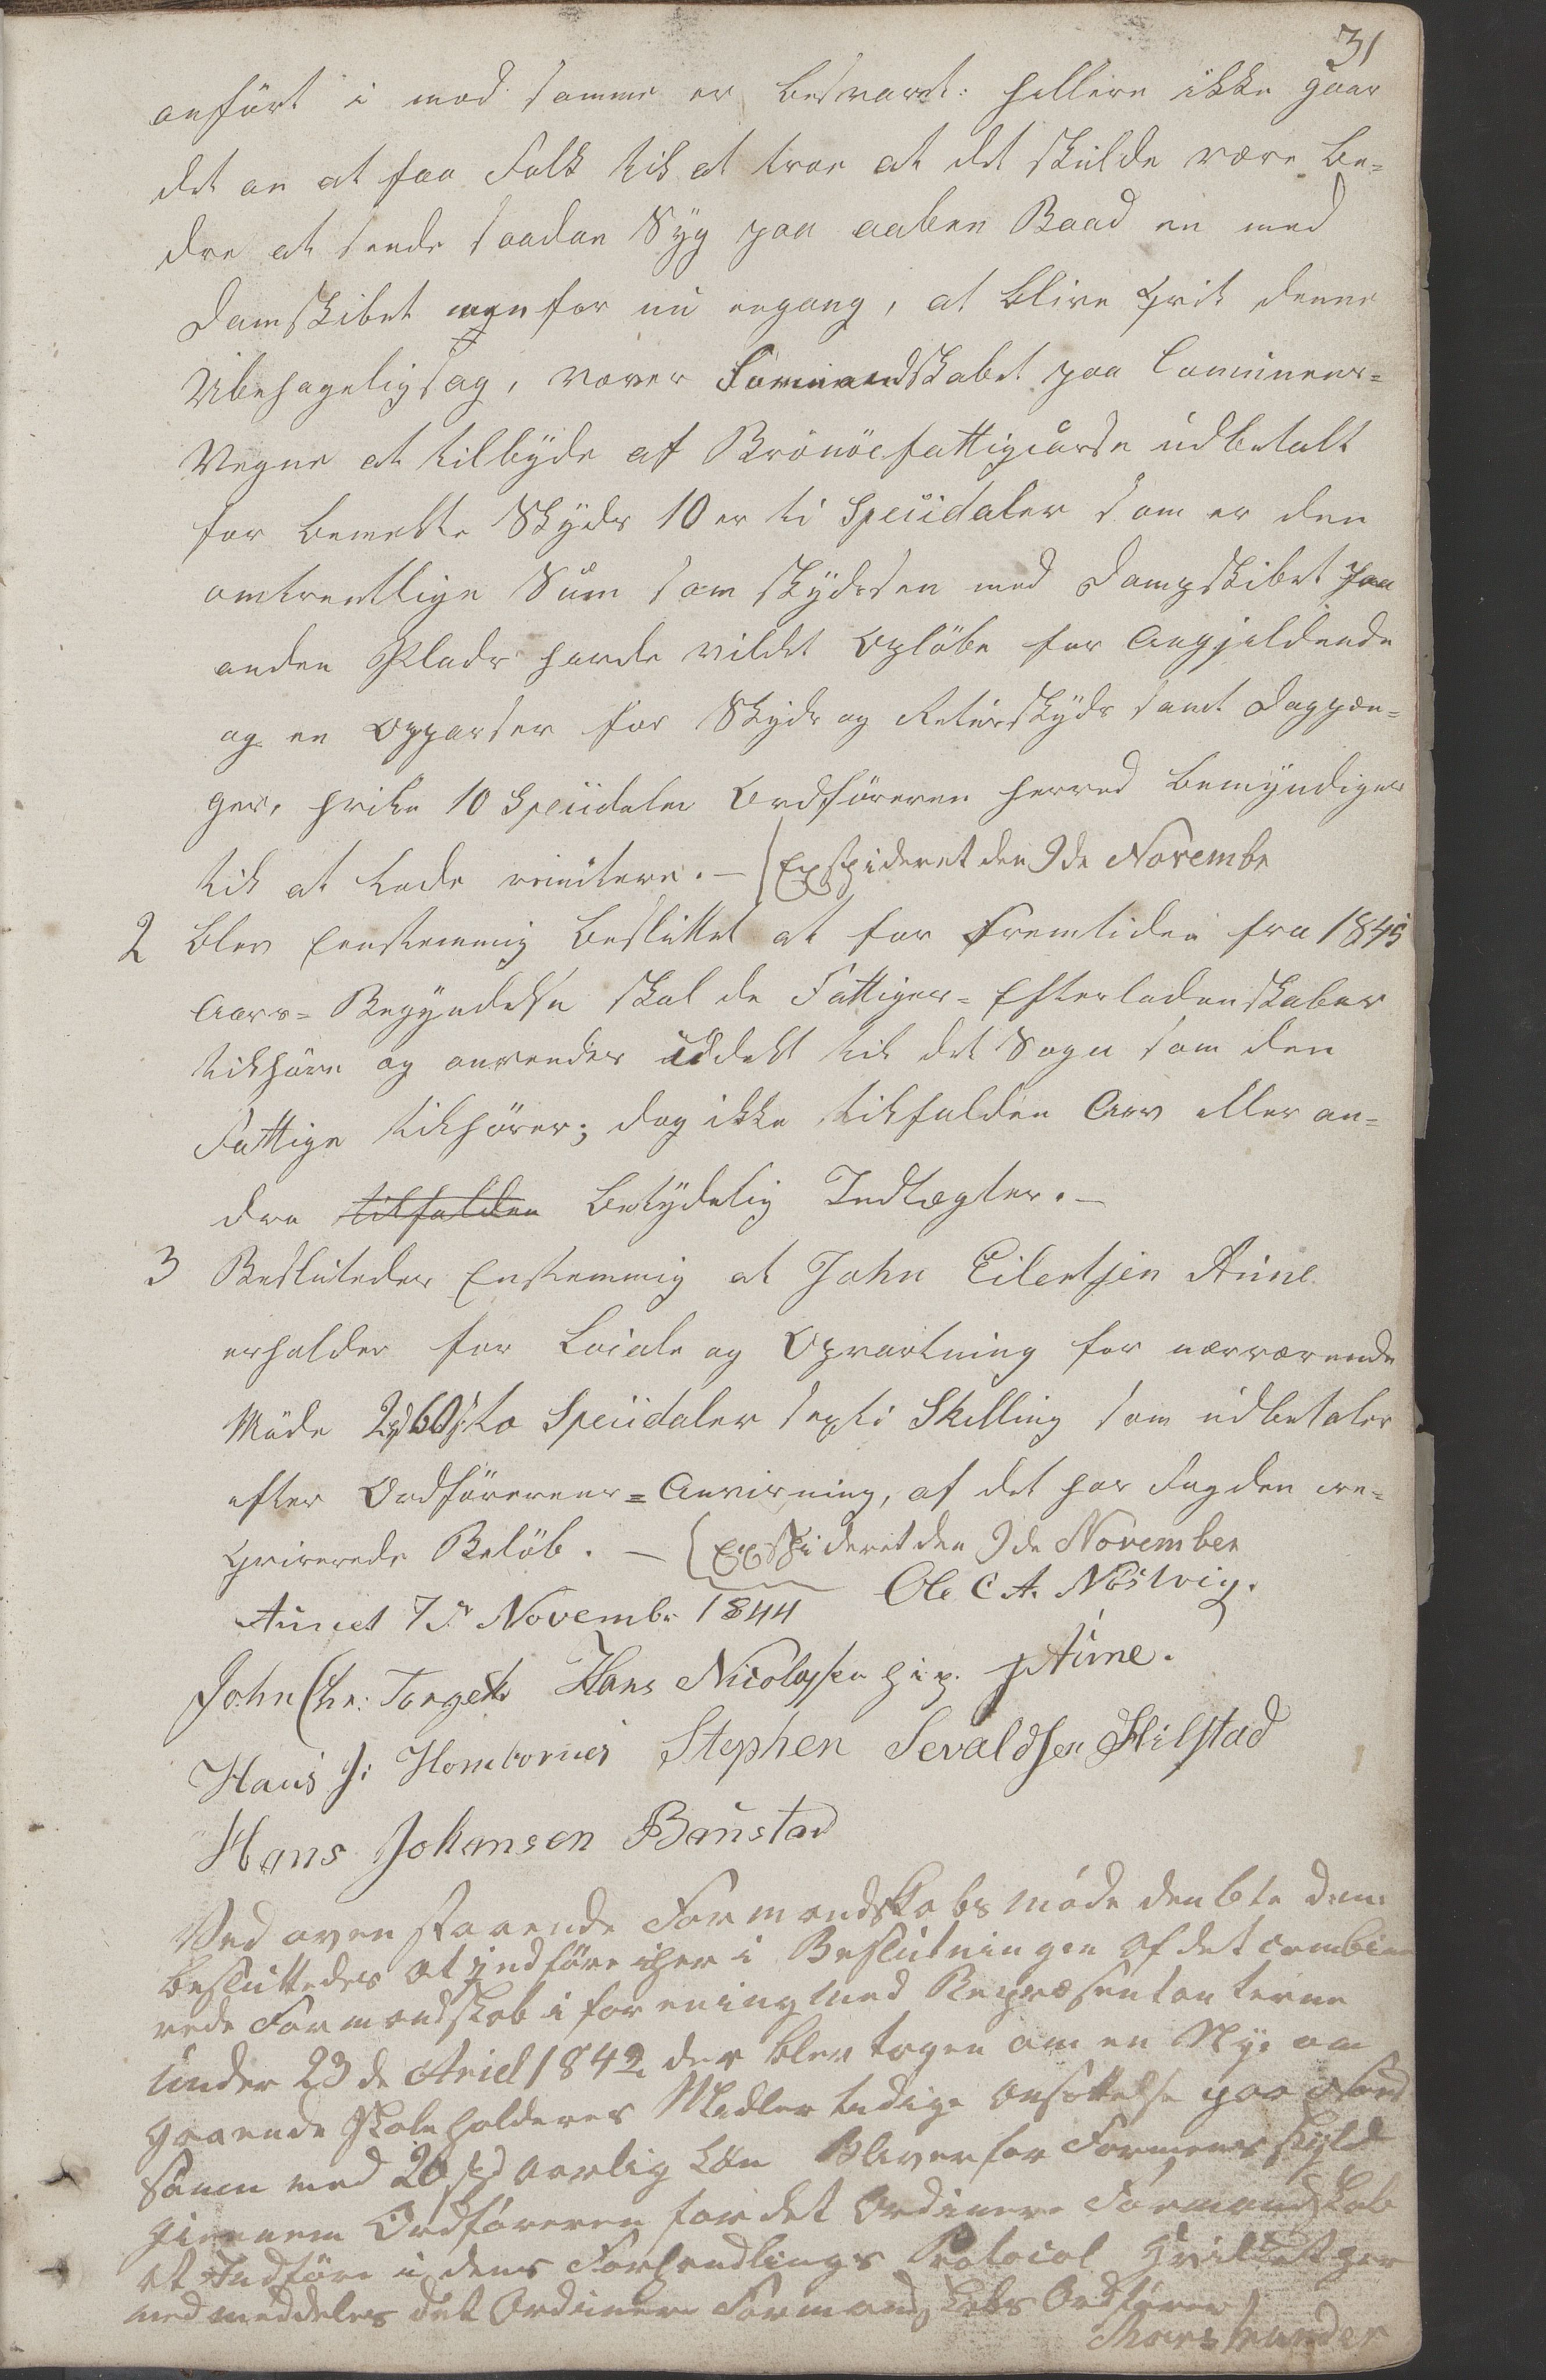 31
anført i mod samme er besvaret: hellere ikke gaar
det an at faa Folk til at troe at det skulde være be-
dre at sende saadan Syg paa aaben Baad en med
Damskibet men for nu engang, at blive qvit denne
Ubehageligsag, vover Formandskabet paa Comunens-
Vegne at tilbyde af Brönöe fattigcasse udbetalt
for bemelte Skyds 10 er ti Speciidaler som er den
omtrentlige Sum som skydsen med Dampskibet paa
anden Plads havde vildet Opløbe for Angjeldende
og en Oppasser for Skyds og Returskyds samt Dagpen-
ger, hvilke 10 Speciidaler Ordføreren herved bemyndiges
til at lade remitere. — Exspideret den 9de Novembr
2 blev Eenstemmig besluttet at for Fremtiden fra 1845
Aars-Begyndelse skal de Fattiges-Efterladenskaber
tilhøre og anvendes udelt til det Sogn som den
Fattige tilhører; dog ikke tilfalden Arv eller an-
dre tilfalden betydelig Indtægter. —
3 Besluttedes Enstemmig at John Eilertsen Aune
erholder for Locale og Opvartning for nærværende
Møde 2 60 to Speciidaler sexti Skilling som udbetales
efter Ordførerens-Anvisning, af det hos Fogden re-
qvirerede Beløb. — Exspideret den 9de November
Aunet 7de Novembr 1844 Ole C. A. Nöstvig.
John Chr: Torget Hans Nicolajsen h. i. p. J Aune.
Hans J: Hombornes Stephen Sevaldsen Hilstad
Hans Johansen Baustad
Ved ovenstaaende Formandskabs møde den 6te dem:
besluttedes at indføre her i Beslutningen af det combine
rede Formandskab i forening med Repræsentanterne
under 23de Aril 1842 der blev tagen om en Nye om
gaaende Skoleholderes Midlertidige ansættelse paa
med 20 spd aarlig Løn Bliver for Formens skyld
giennem Ordføreren for det Ordinere Formandskab
at Indføre i dens Forhandlings Protocol Hvilket her
ved meddeles det Ordinere Formandskabs Ordfører